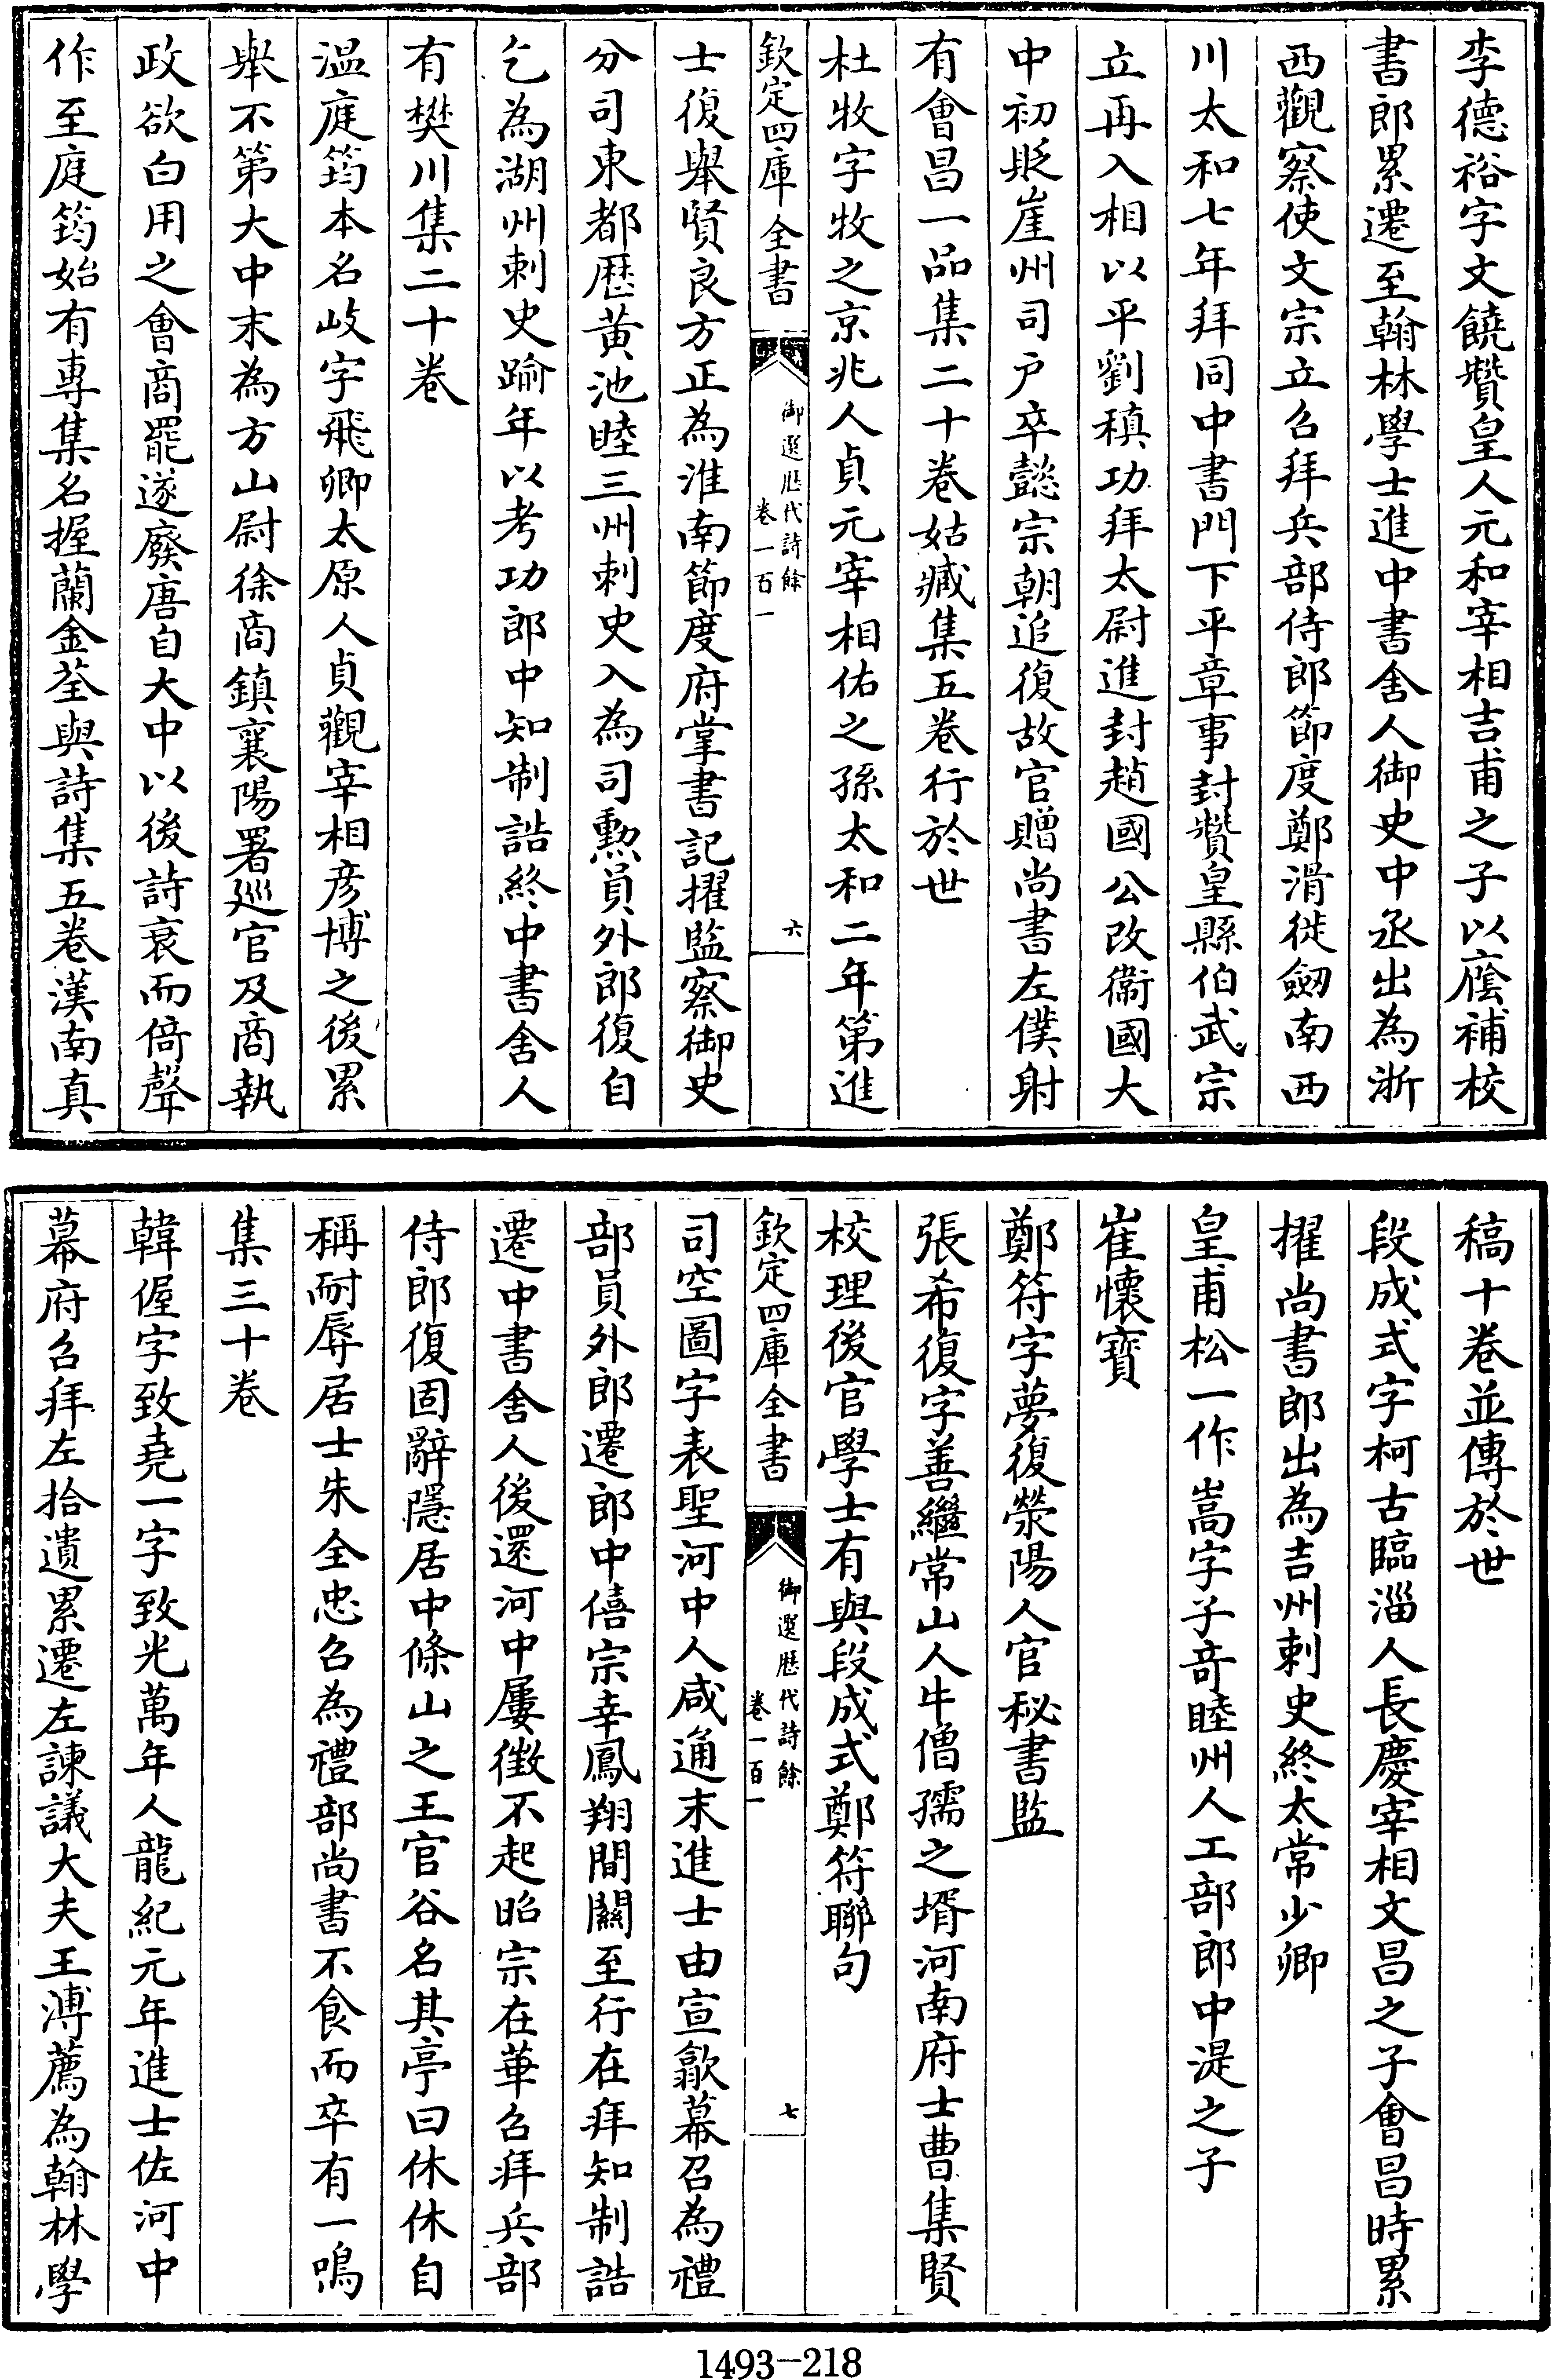 李德裕字文饒贊皇人元和宰相吉甫之子以廕補校
書郎累遷至翰林學士進中書舍人御史中丞出為浙
西觀察使文宗立召拜兵部侍郎節度鄭滑徙劔南西
川太和七年拜同中書門下平章事封贊皇縣伯武宗
立再入相以平劉稹功拜太尉進封趙國公改衞國大
中初貶崖州司戶卒懿宗朝追復故官贈尚書左僕射
有會昌一品集二十卷姑臧集五卷行於世
杜牧字牧之京兆人貞元宰相佑之孫太和二年第進
欽定四庫全書
御選歷代詩餘
卷一百一
六
士復舉賢良方正為淮南節度府掌書記擢監察御史
分司東都歷黃池睦三州刺史入為司勲員外郎復自
乞為湖州刺史踰年以考功郎中知制誥終中書舍人
有樊川集二十卷
溫庭筠本名岐字飛卿太原人貞觀宰相彥博之後累
舉不第大中末為方山尉徐商鎮襄陽署廵官及商執
政欲白用之會商罷遂廢唐自大中以後詩衰而倚聲
作至庭筠始有專集名握蘭金荃與詩集五卷漢南真
稿十卷並傳於世
段成式字柯古臨淄人長慶宰相文昌之子會昌時累
擢尚書郎出為吉州刺史終太常少卿
皇甫松一作嵩字子竒睦州人工部郎中湜之子
崔懷寶
鄭符字夢復滎陽人官秘書監
張希復字善繼常山人牛僧孺之壻河南府士曹集賢
校理後官學士有與段成式鄭符聯句
欽定四庫全書
御選歷代詩餘
卷一百一
七
司空圖字表聖河中人咸通末進士由宣歙幕召為禮
部員外郎遷郎中僖宗幸鳳翔間關至行在拜知制誥
遷中書舍人後還河中屢徵不起昭宗在華召拜兵部
侍郎復固辭隱居中條山之王官谷名其亭曰休休自
稱耐辱居士朱全忠召為禮部尚書不食而卒有一鳴
集三十卷
韓偓字致堯一字致光萬年人龍紀元年進士佐河中
幕府召拜左拾遺累遷左諫議大夫王溥薦為翰林學
1493-218